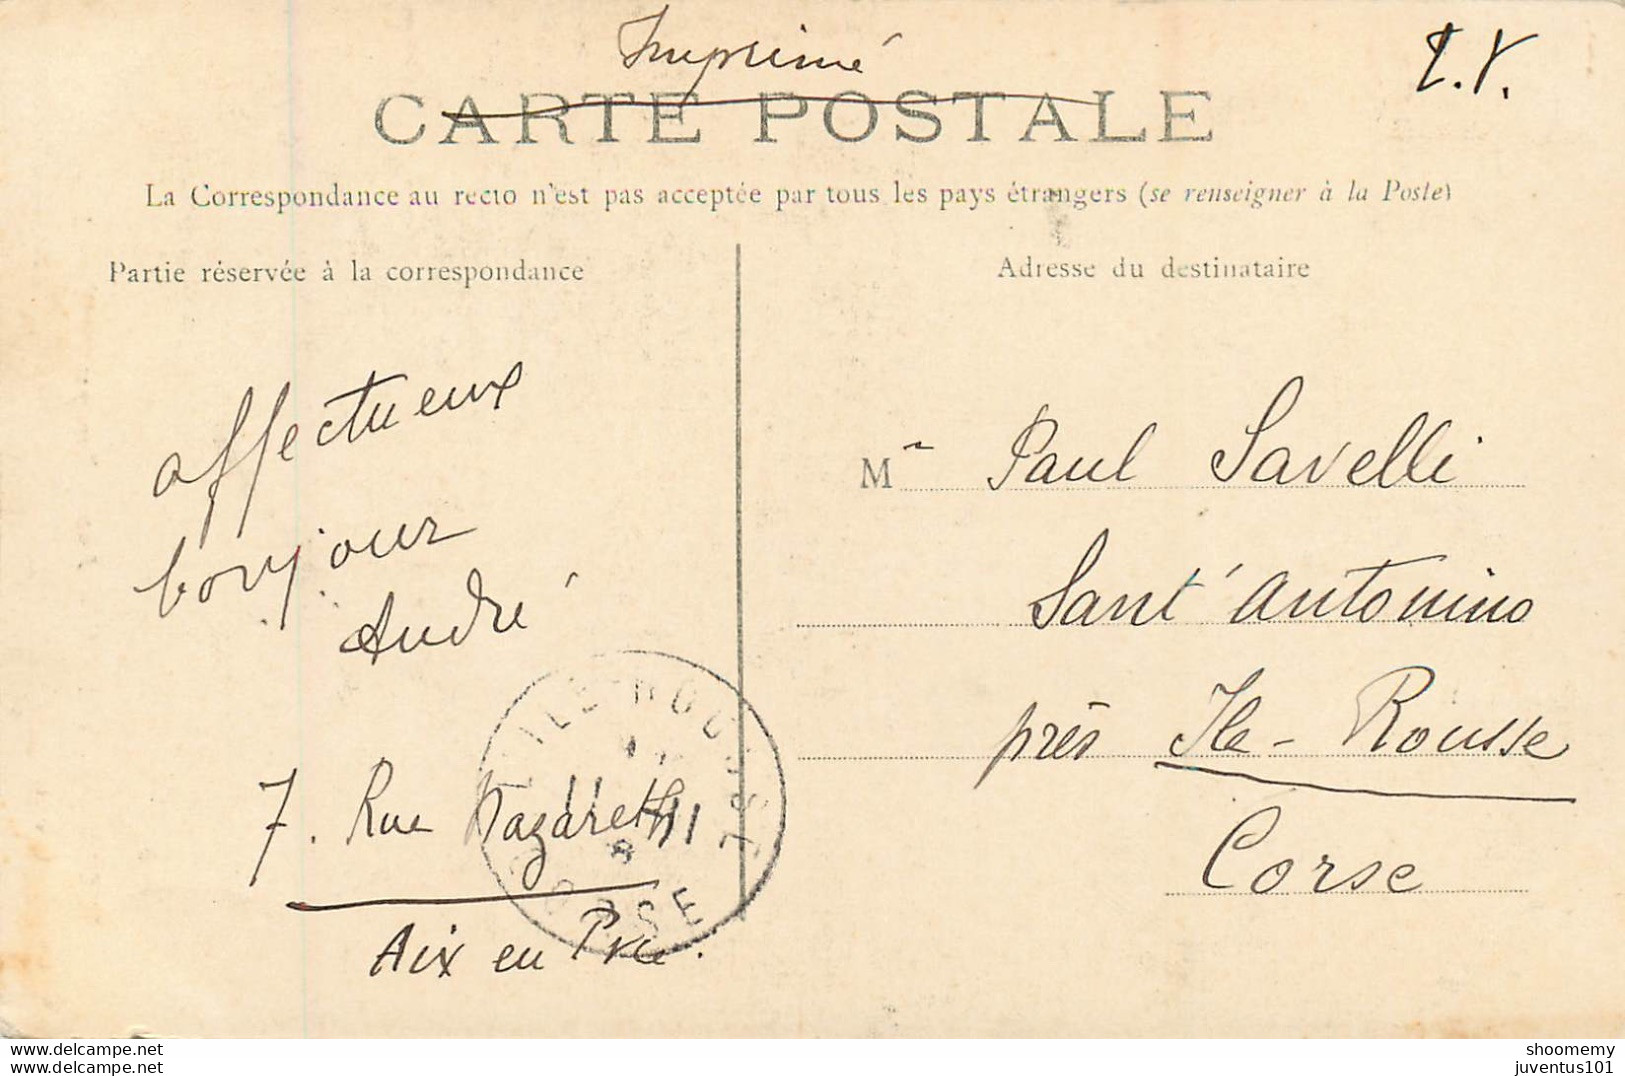 Imprimé
T.V.
CARTE POSTALE
La Correspondance au recto n'est pas acceptée par tous les pays étrangers (se renseigner à la Poste)
Partie réservée à la correspondance
Adresse du destinataire
affectueux
bonjour
André
7. Rue Nazareth
Aix en Pce.
M r Paul Savelli
Sant'Antonino
près Ile-Rousse
Corse
L'ILE-ROUSSE
CORSE
delcampe.net
juventus101
shoomemy
juventus101